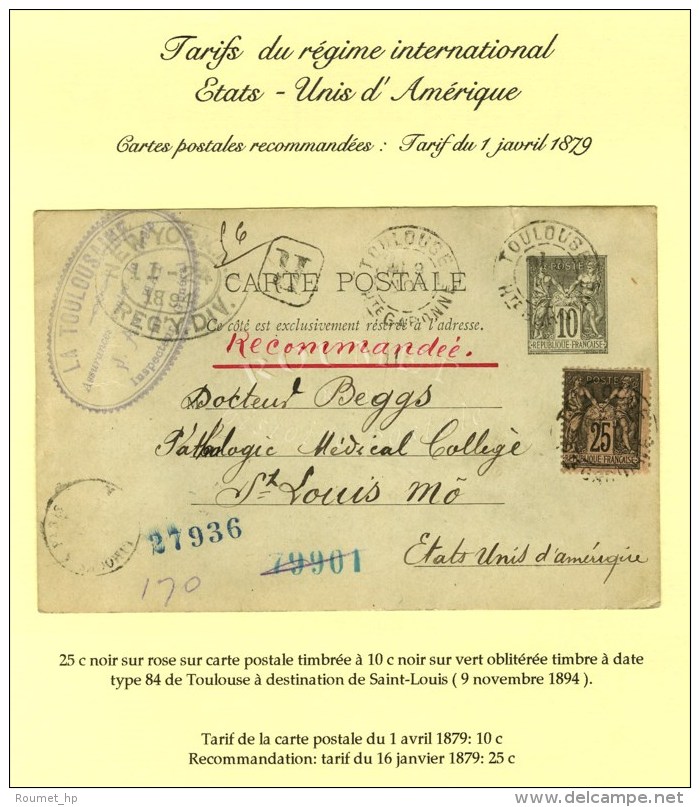 Tarifs du régime international
Etats - Unis d'Amérique
Cartes postales recommandées : Tarif du 1 javril 1879
LA TOULOUSAINE
NEW YORK
11-
1894
REG'Y. DIV.
56
R
TOULOUSE
Hte GARONNE
TOULOUSE
CARTE POSTALE
Ce côté est exclusivement réservé à l'adresse.
POSTE
10
REPUBLIQUE FRANÇAISE
Recommandée.
ROUMET
Docteur Beggs
Pathologic Médical College
St Louis Mô
Etats Unis d'amérique
POSTE
25
REPUBLIQUE FRANÇAISE
27936
79901
170
25 c noir sur rose sur carte postale timbrée à 10 c noir sur vert oblitérée timbre à date
type 84 de Toulouse à destination de Saint-Louis ( 9 novembre 1894 ).
Tarif de la carte postale du 1 avril 1879: 10 c
Recommandation: tarif du 16 janvier 1879: 25 c
Roumet_hp
delcampe.net